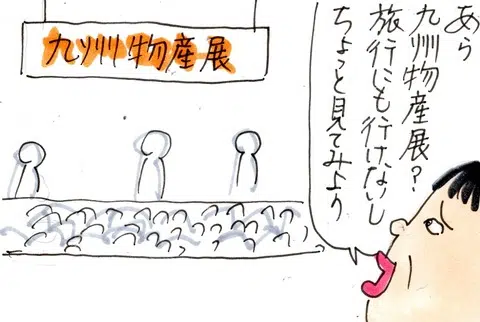 九州物産展
あら
九州物産展？
旅行にも行けないし
ちょっと見てみよう